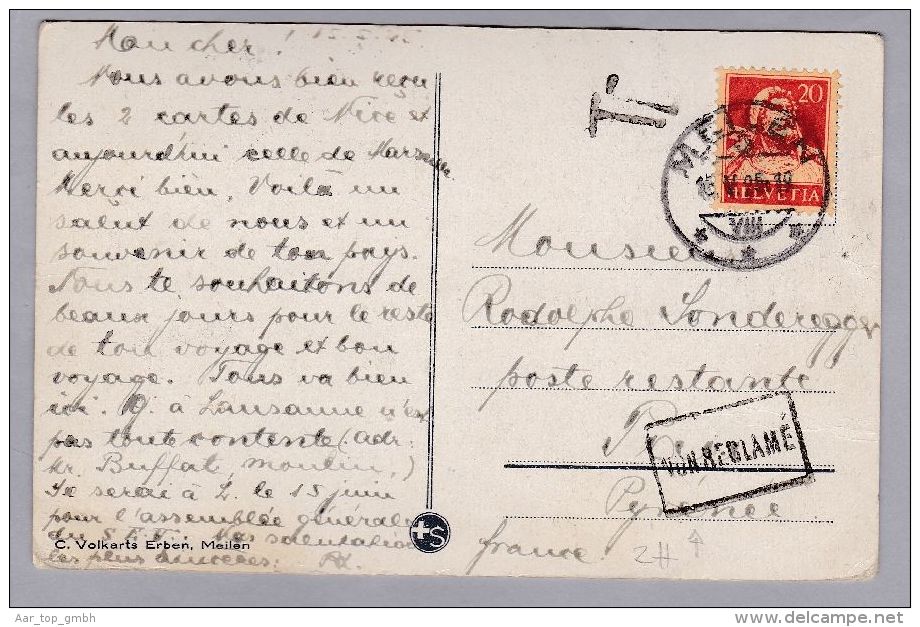 Mon cher!
Nous avons bien reçu
les 2 cartes de Nice et
aujourd'hui celle de Marseille
Merci bien. Voilà un
salut de nous et un
souvenir de ton pays.
Tous te souhaitons de
beaux jours pour le reste
de ton voyage et bon
voyage. Tous va bien
ici. à Lausanne n'est
pas toute contente (adr.
Buffat, moulin,)
Je serai à L. le 15 juin
pour l'assemblée générale
du salutations
les plus
C. Volkarts Erben, Meilen
+S
T
20
HELVETIA
MEILEN
VIII
Monsieur
Rodolphe Sonderegger
poste restante
Pau
Pyrénée
france
NON RECLAMÉ
2H
Aar_top_gmbh
www.delcampe.net